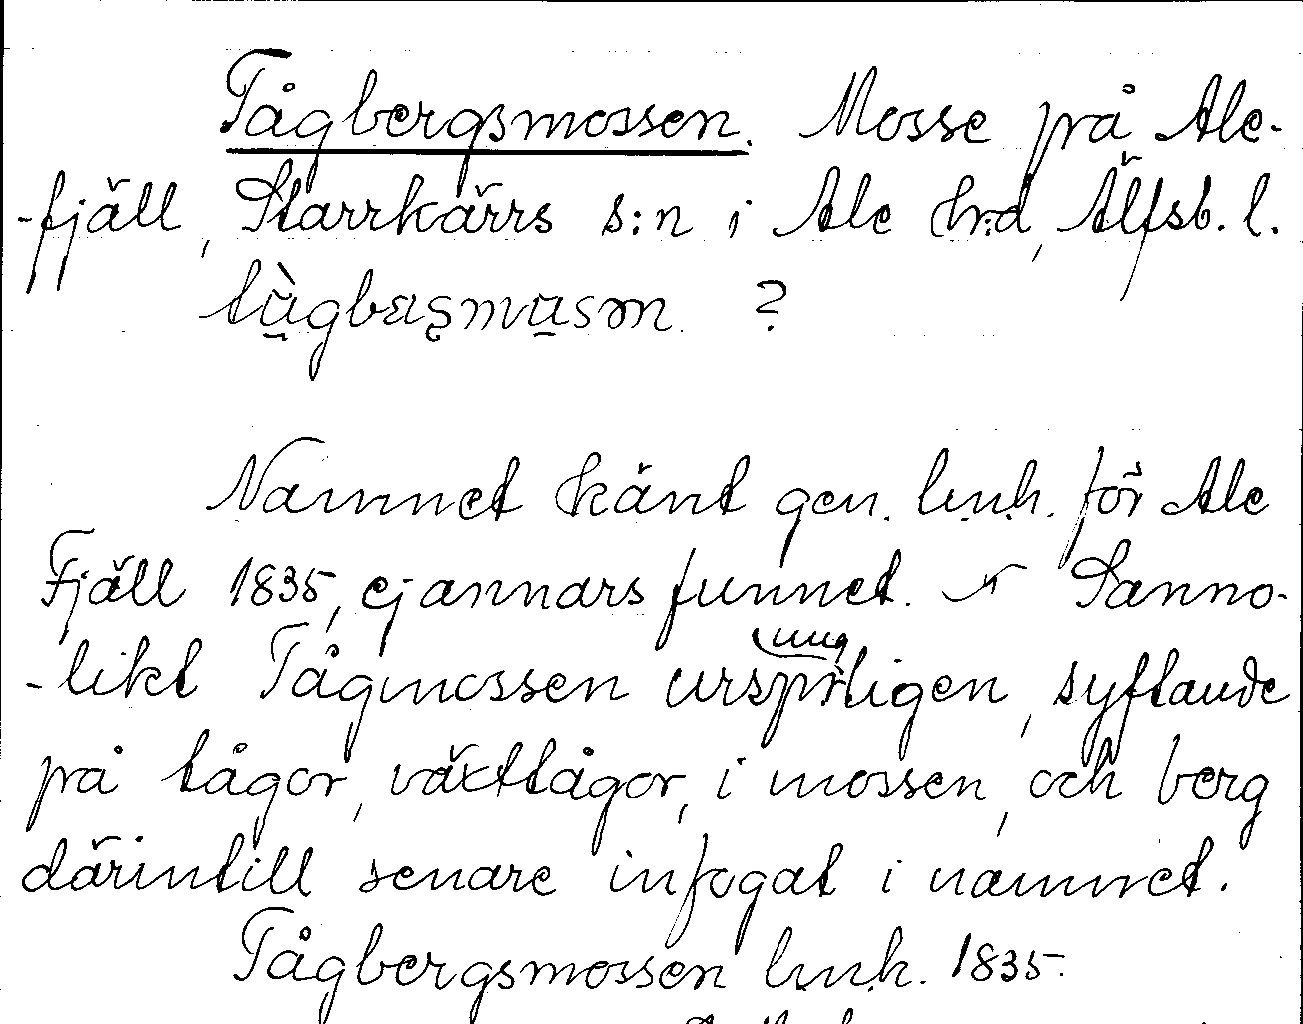 Tågbergsmossen. Mosse på Ale-
-fjäll, Starrkärrs s:n i Ale hr:d, Älfsb. l.
?
Namnet känt gen. lm.h. för Ale
Fjäll 1835, ej annars funnet. Sanno-
-likt Tågmossen ursprungligen, syftande
på tågor, växttågor, i mossen, och berg
därintill senare infogat i namnet.
Tågbergsmossen lm.h. 1835.